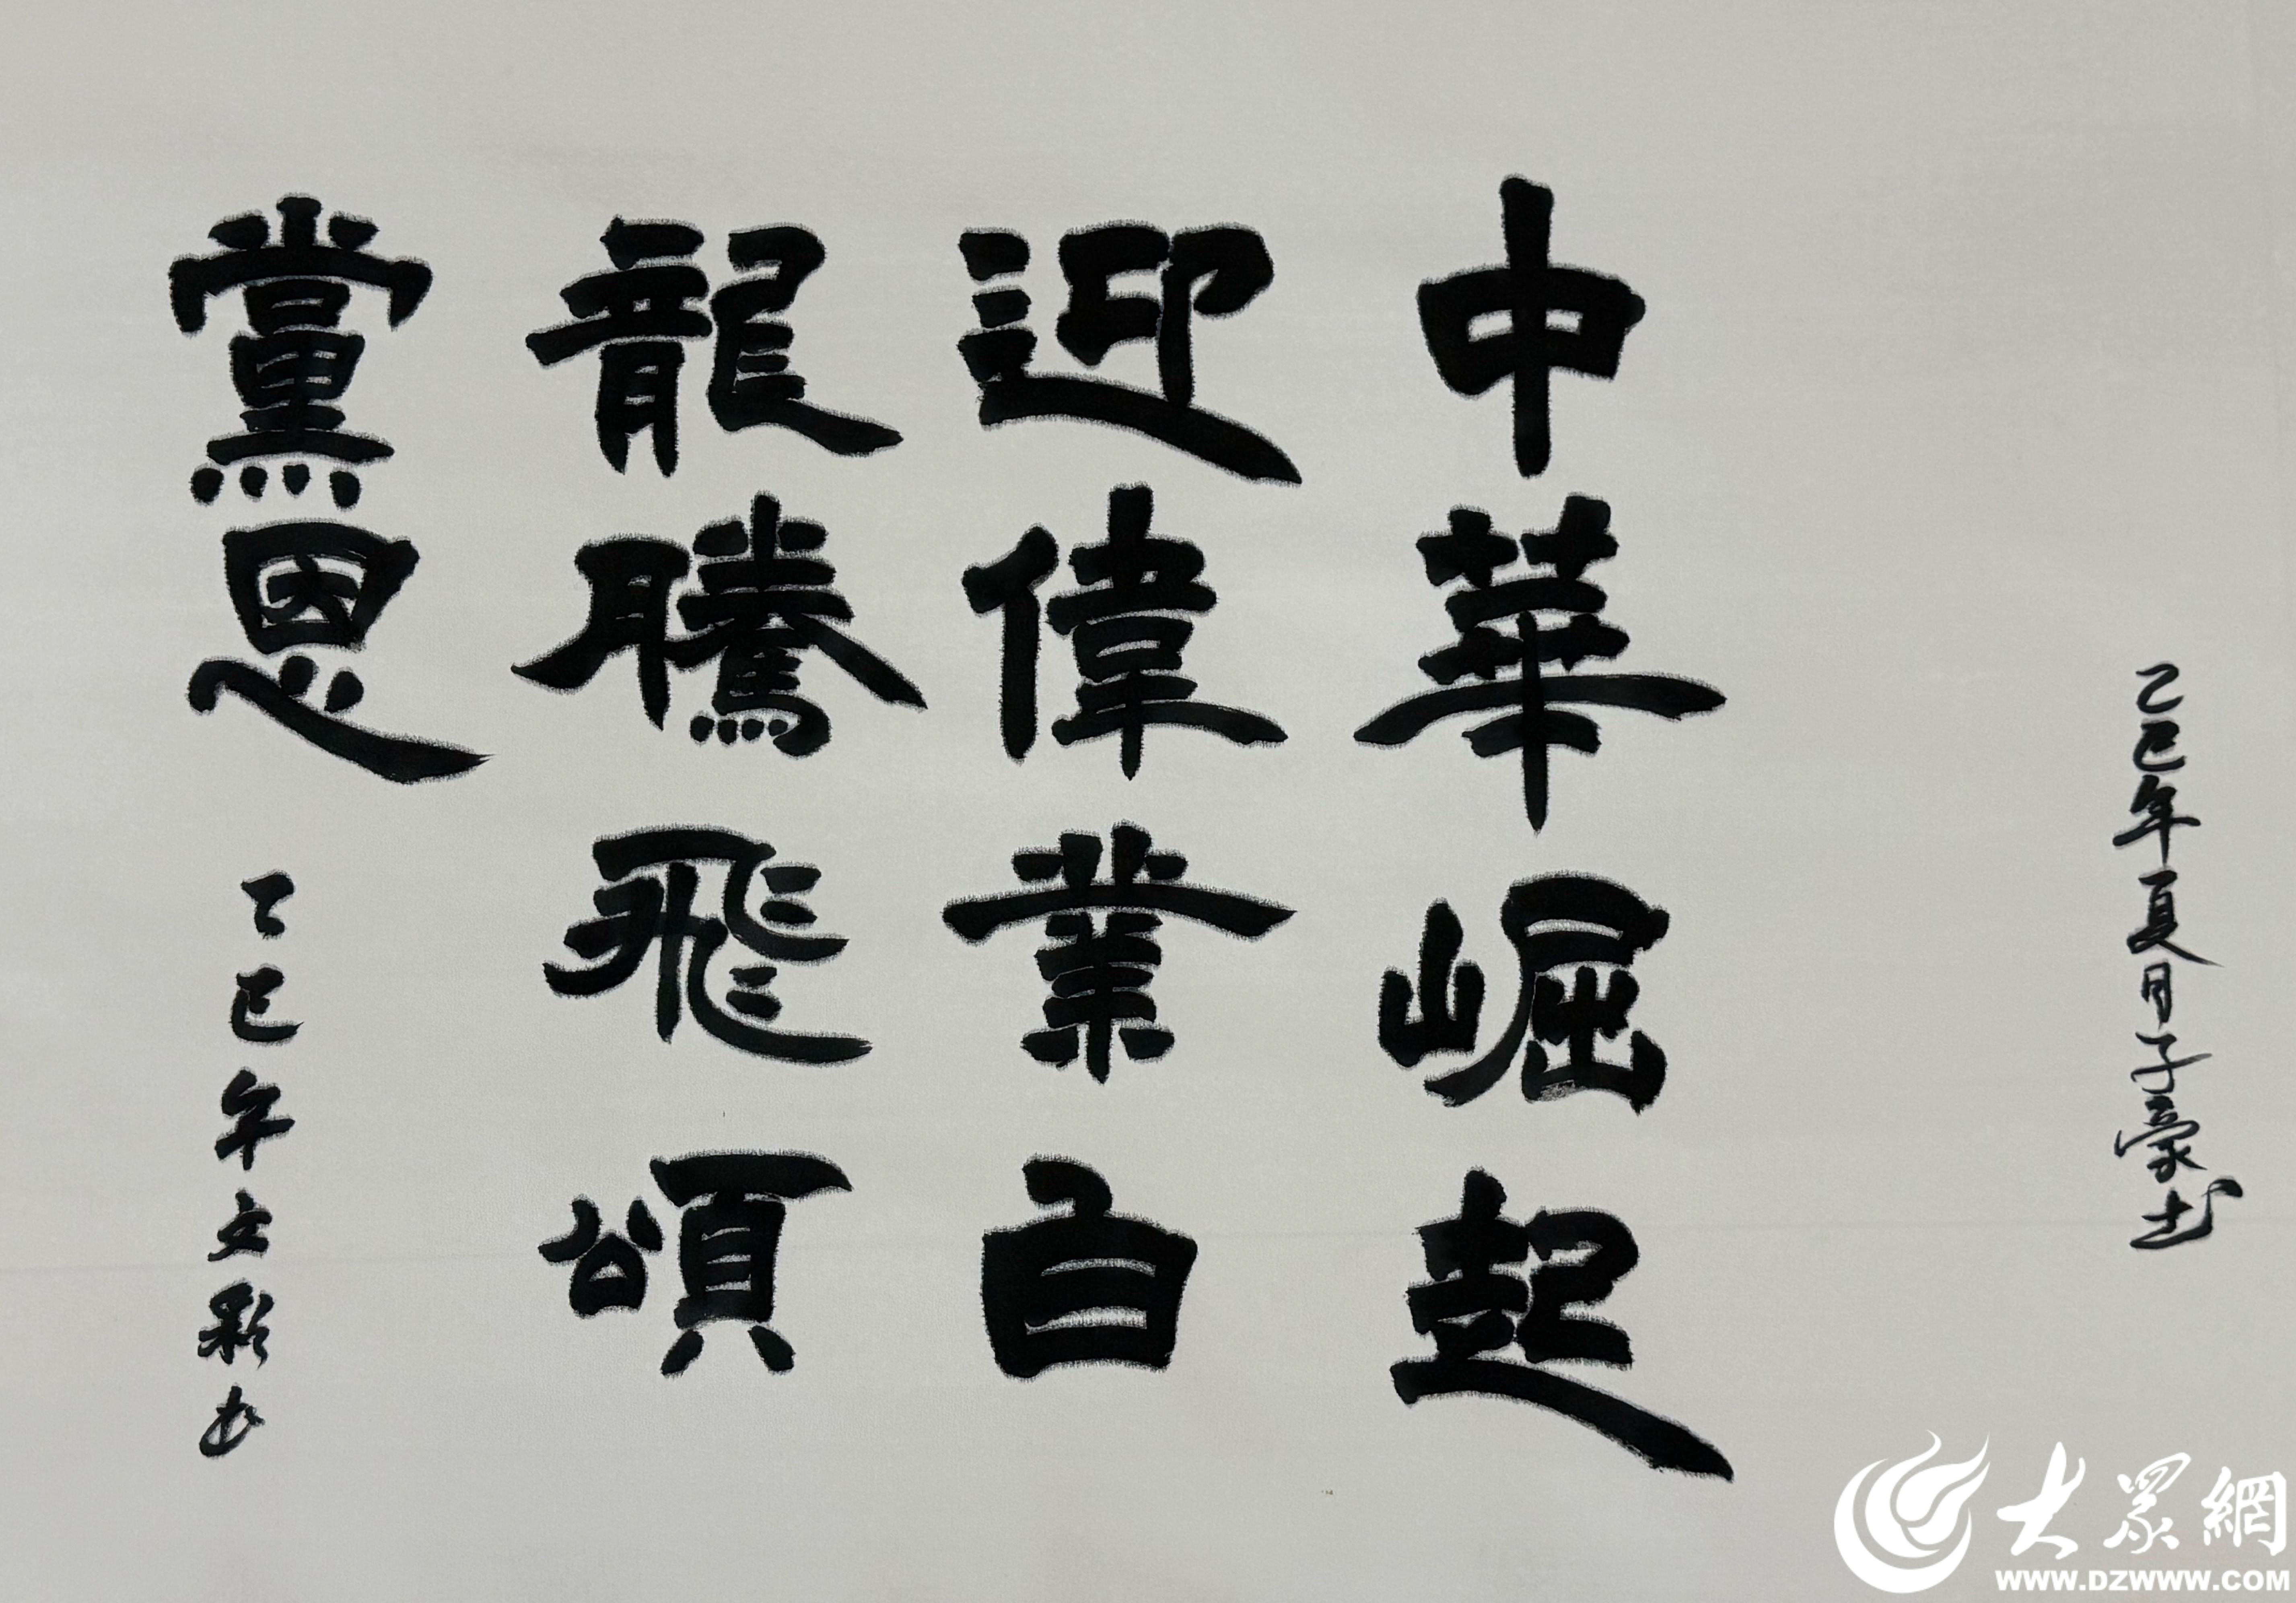 乙巳年夏月子豪书
中華崛起
迎偉業白
龍騰飛頌
黨恩
乙巳年立彩书
大眾網
WWW.DZWWW.COM